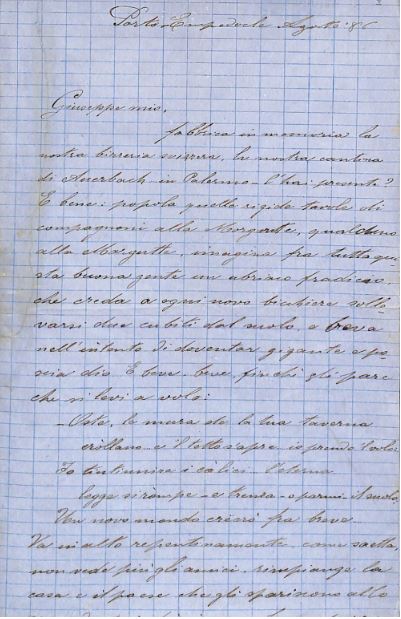 Porto Empedocle Agosto '86
Giuseppe mio,
fabbrica in memoria la
nostra birreria svizzera, la nostra cantina
di Auerbach in Palermo - l'hai presente?
E bene: popola quelle rigide tavole di
compagnoni alla Margutte, qualcheno
alla Margutte, imagina fra tutta que,
sta buona gente un ubriaco fradicio,
che creda a ogni novo bicchiere solle,
varsi due cubiti dal suolo, e beva
nell'intento di doventar gigante e po,
scia dio. E beve, beve, finchè gli pare
che si levi a volo:
- Oste, le mura de la tua taverna
crollano - e 'l tetto s'apre - io prendo 'l volo.
Io tintinnire i calici - l'eterna
legge si rompe - e trema - o parmi - il suolo.
Un novo mondo creerò fra breve -
Va in alto repentinamente, come saetta,
non vede più gli amici, rimpiange la
casa e il paese che gli spariscono allo